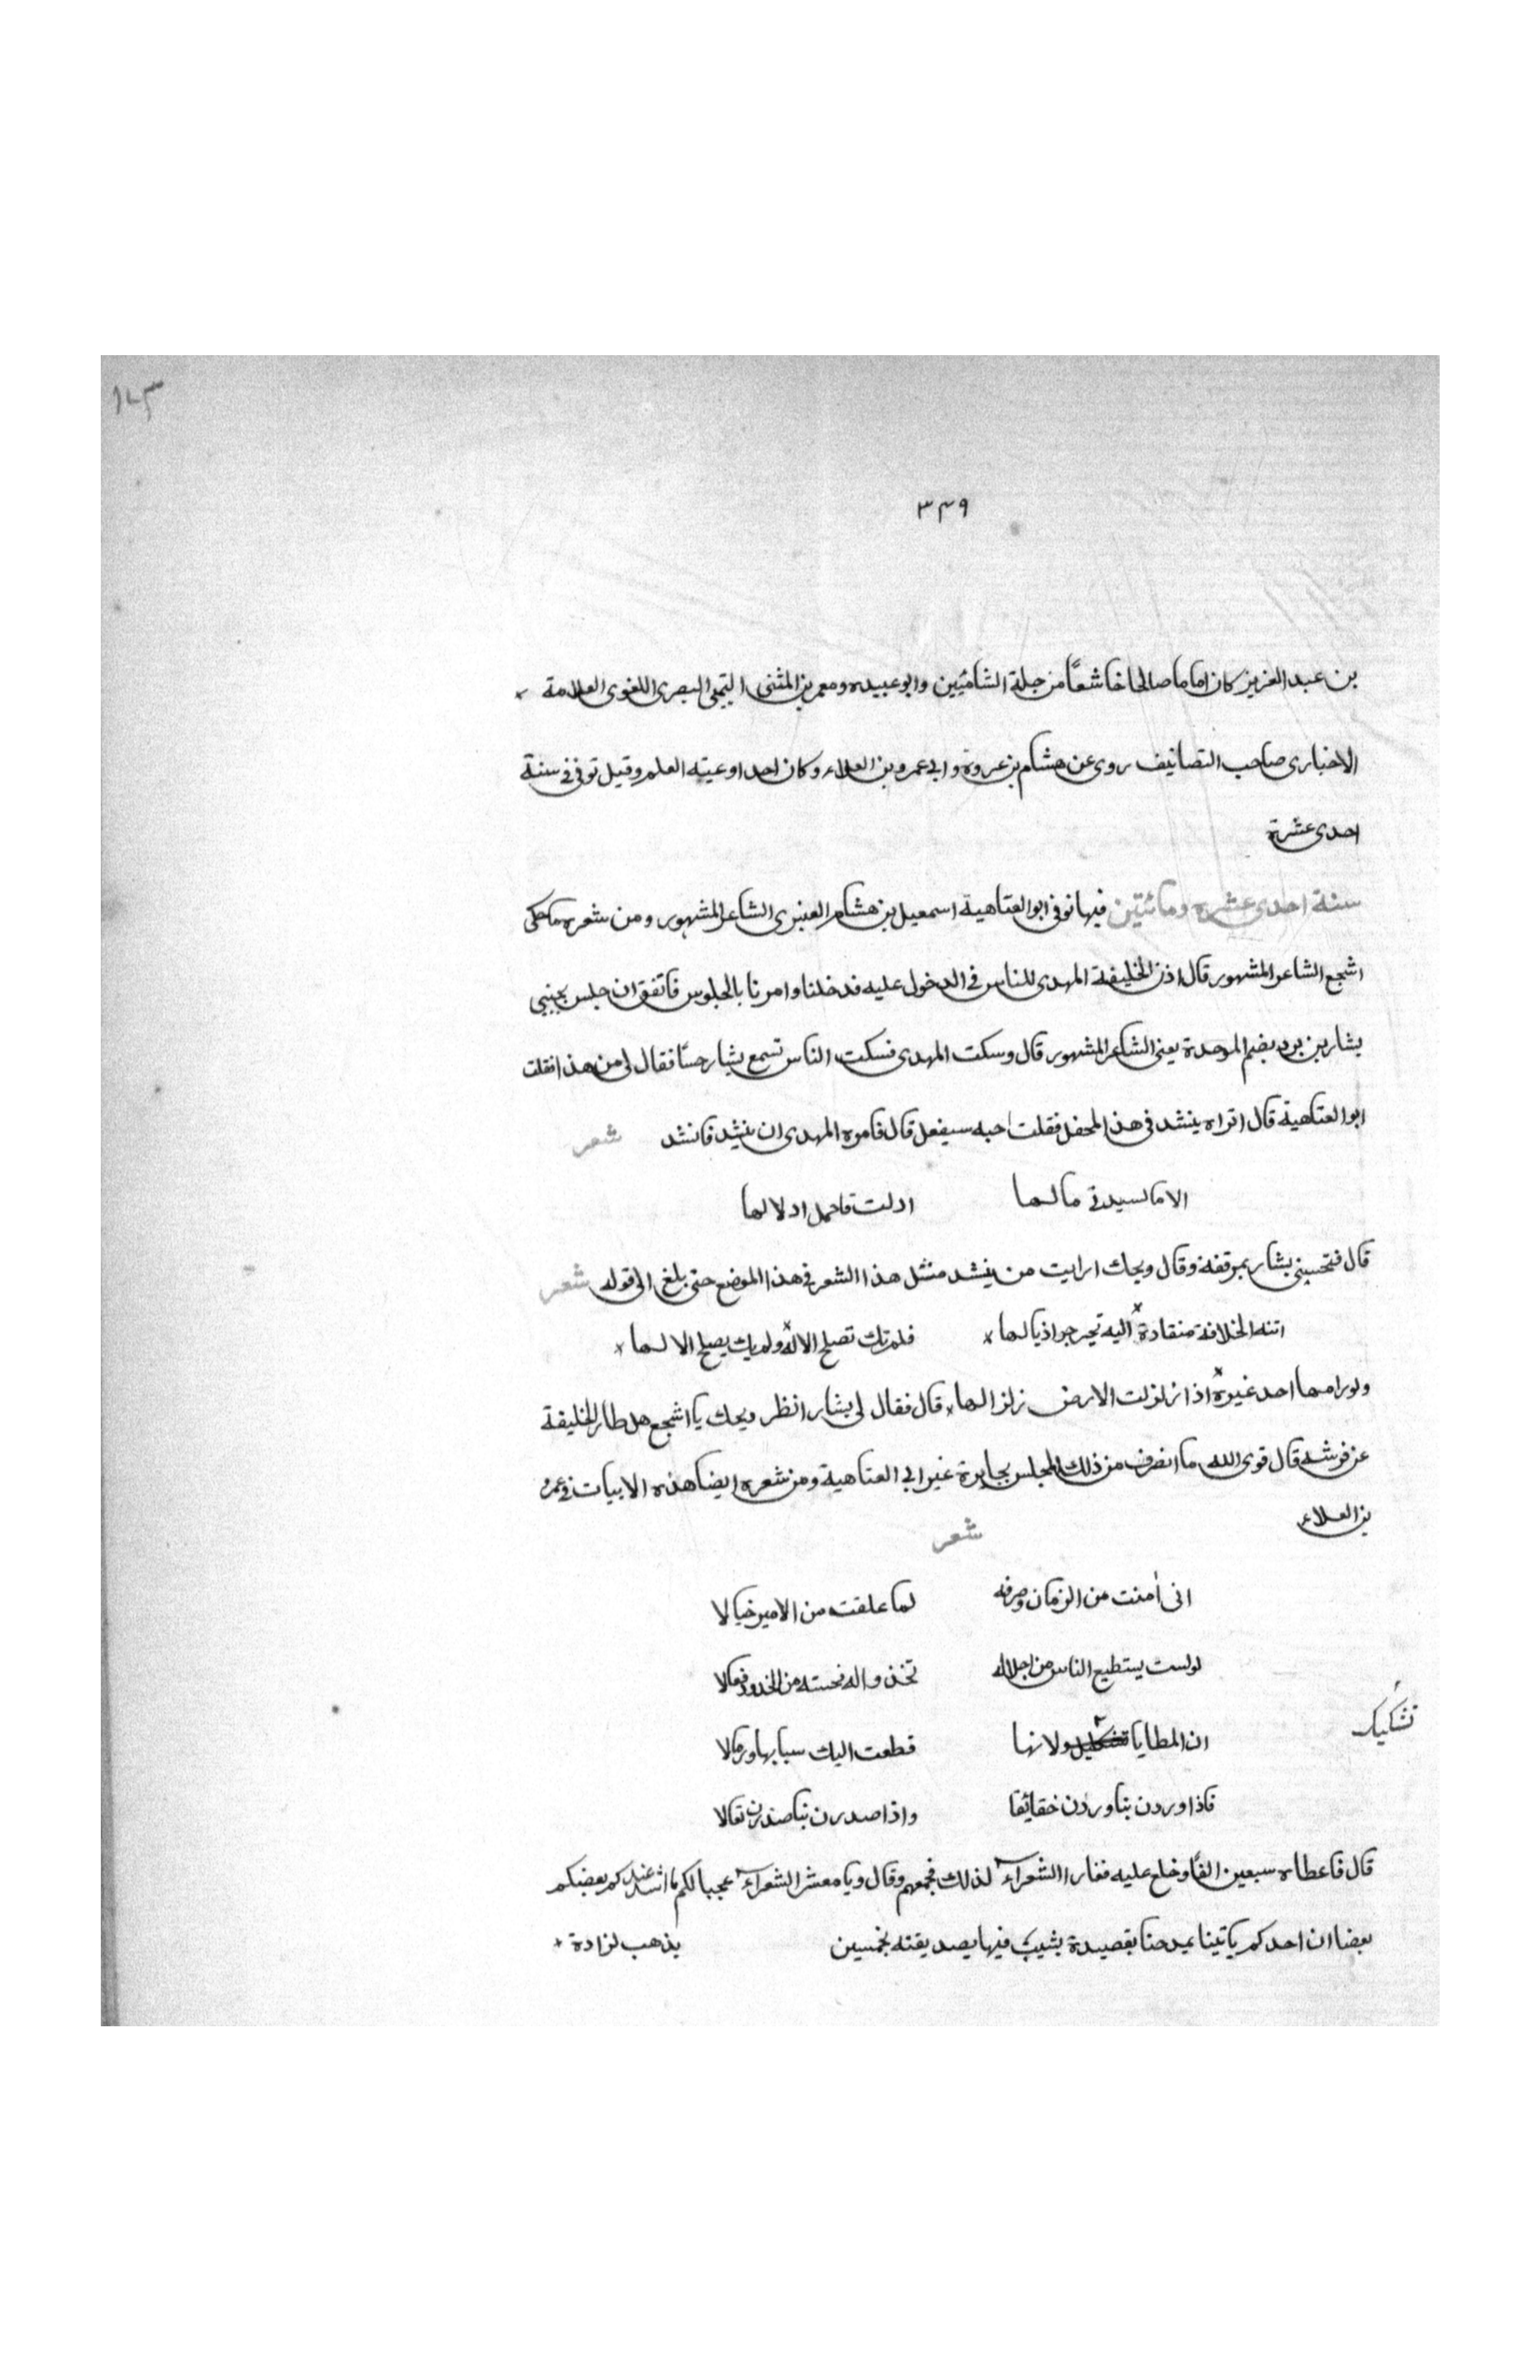 ٣٤٩
بن عبد العزيز كان اماما صالحا خاشعًا من جلة الشاميين وابو عبيده ومعمر بن المثنى التيمى البصرى اللغوى العلامة
الاخبارى صاحب التصانيف روى عن هشام بن عروة وابى عمرو بن العلاء وكان احد اوعيته العلم وقيل توفى فى سنة
احدى عشرة
سنة احدى عشره ومائتين فيها توفى ابو العتاهية اسمعيل بن هشام العنبرى الشاعر المشهور ومن شعره ما حكى
اشجع الشاعر المشهور قال اذن الخليفة المهدى للناس فى الدخول عليه فدخلنا وامرنا بالجلوس فاتفق ان جلس بجنبى
بشار بن برد بضم الموحدة يعنى الشاعر المشهور قال وسكت المهدى فسكت الناس تسمع بشار حسًا فقال لى من هذا فقلت
ابو العتاهية قال اتراه ينشد فى هذا المحفل فقلت احبه سيفعل قال فامره المهدى ان ينشد فانشد شعر
الا ما لسيدتى ما لها ادلت فاحمل ادلالها
قال فنحسنى بشار بمرفقه وقال ويحك ارايت من ينشد مثل هذا الشعر فى هذا الموضع حتى بلغ الى قوله شعر
اتته الخلافة منقادة اليه تجرجر اذيالها فلم تك تصلح الا له ولم يك يصلح الا لها
ولو رامها احد غيره اذا زلزلت الارض زلزالها قال فقال لى بشار انظر ويحك يا اشجع هل طار الخليفة
عن فرشه قال قوى الله ما انصرف من ذلك المجلس بجايزة غير ابى العتاهية ومن شعره ايضا هذه الابيات فى عمر
بن العلاء شعر
انى أمنت من الزمان وصرفه لما علقت من الامير خبالا
لو لست يستطيع الناس من اجلاله تخذوا له نحسته من الخدود فعالا
تشكيك
ان المطايا ولانها قطعت اليك سبابها ورمالا
فاذا وردن بنا وردن خفائقا واذا صدرن بنا صدرن ثقالا
قال فاعطاه سبعين الفًا وخلع عليه فغار الشعراء لذلك فجمعهم وقال ويا معشر الشعراء عجبا لكم ما اشد عندكم بعضكم
بعضا ان احدكم ياتينا يمدحنا بقصيدة يشبب فيها بصديقته بخمسين يذهب لزادة